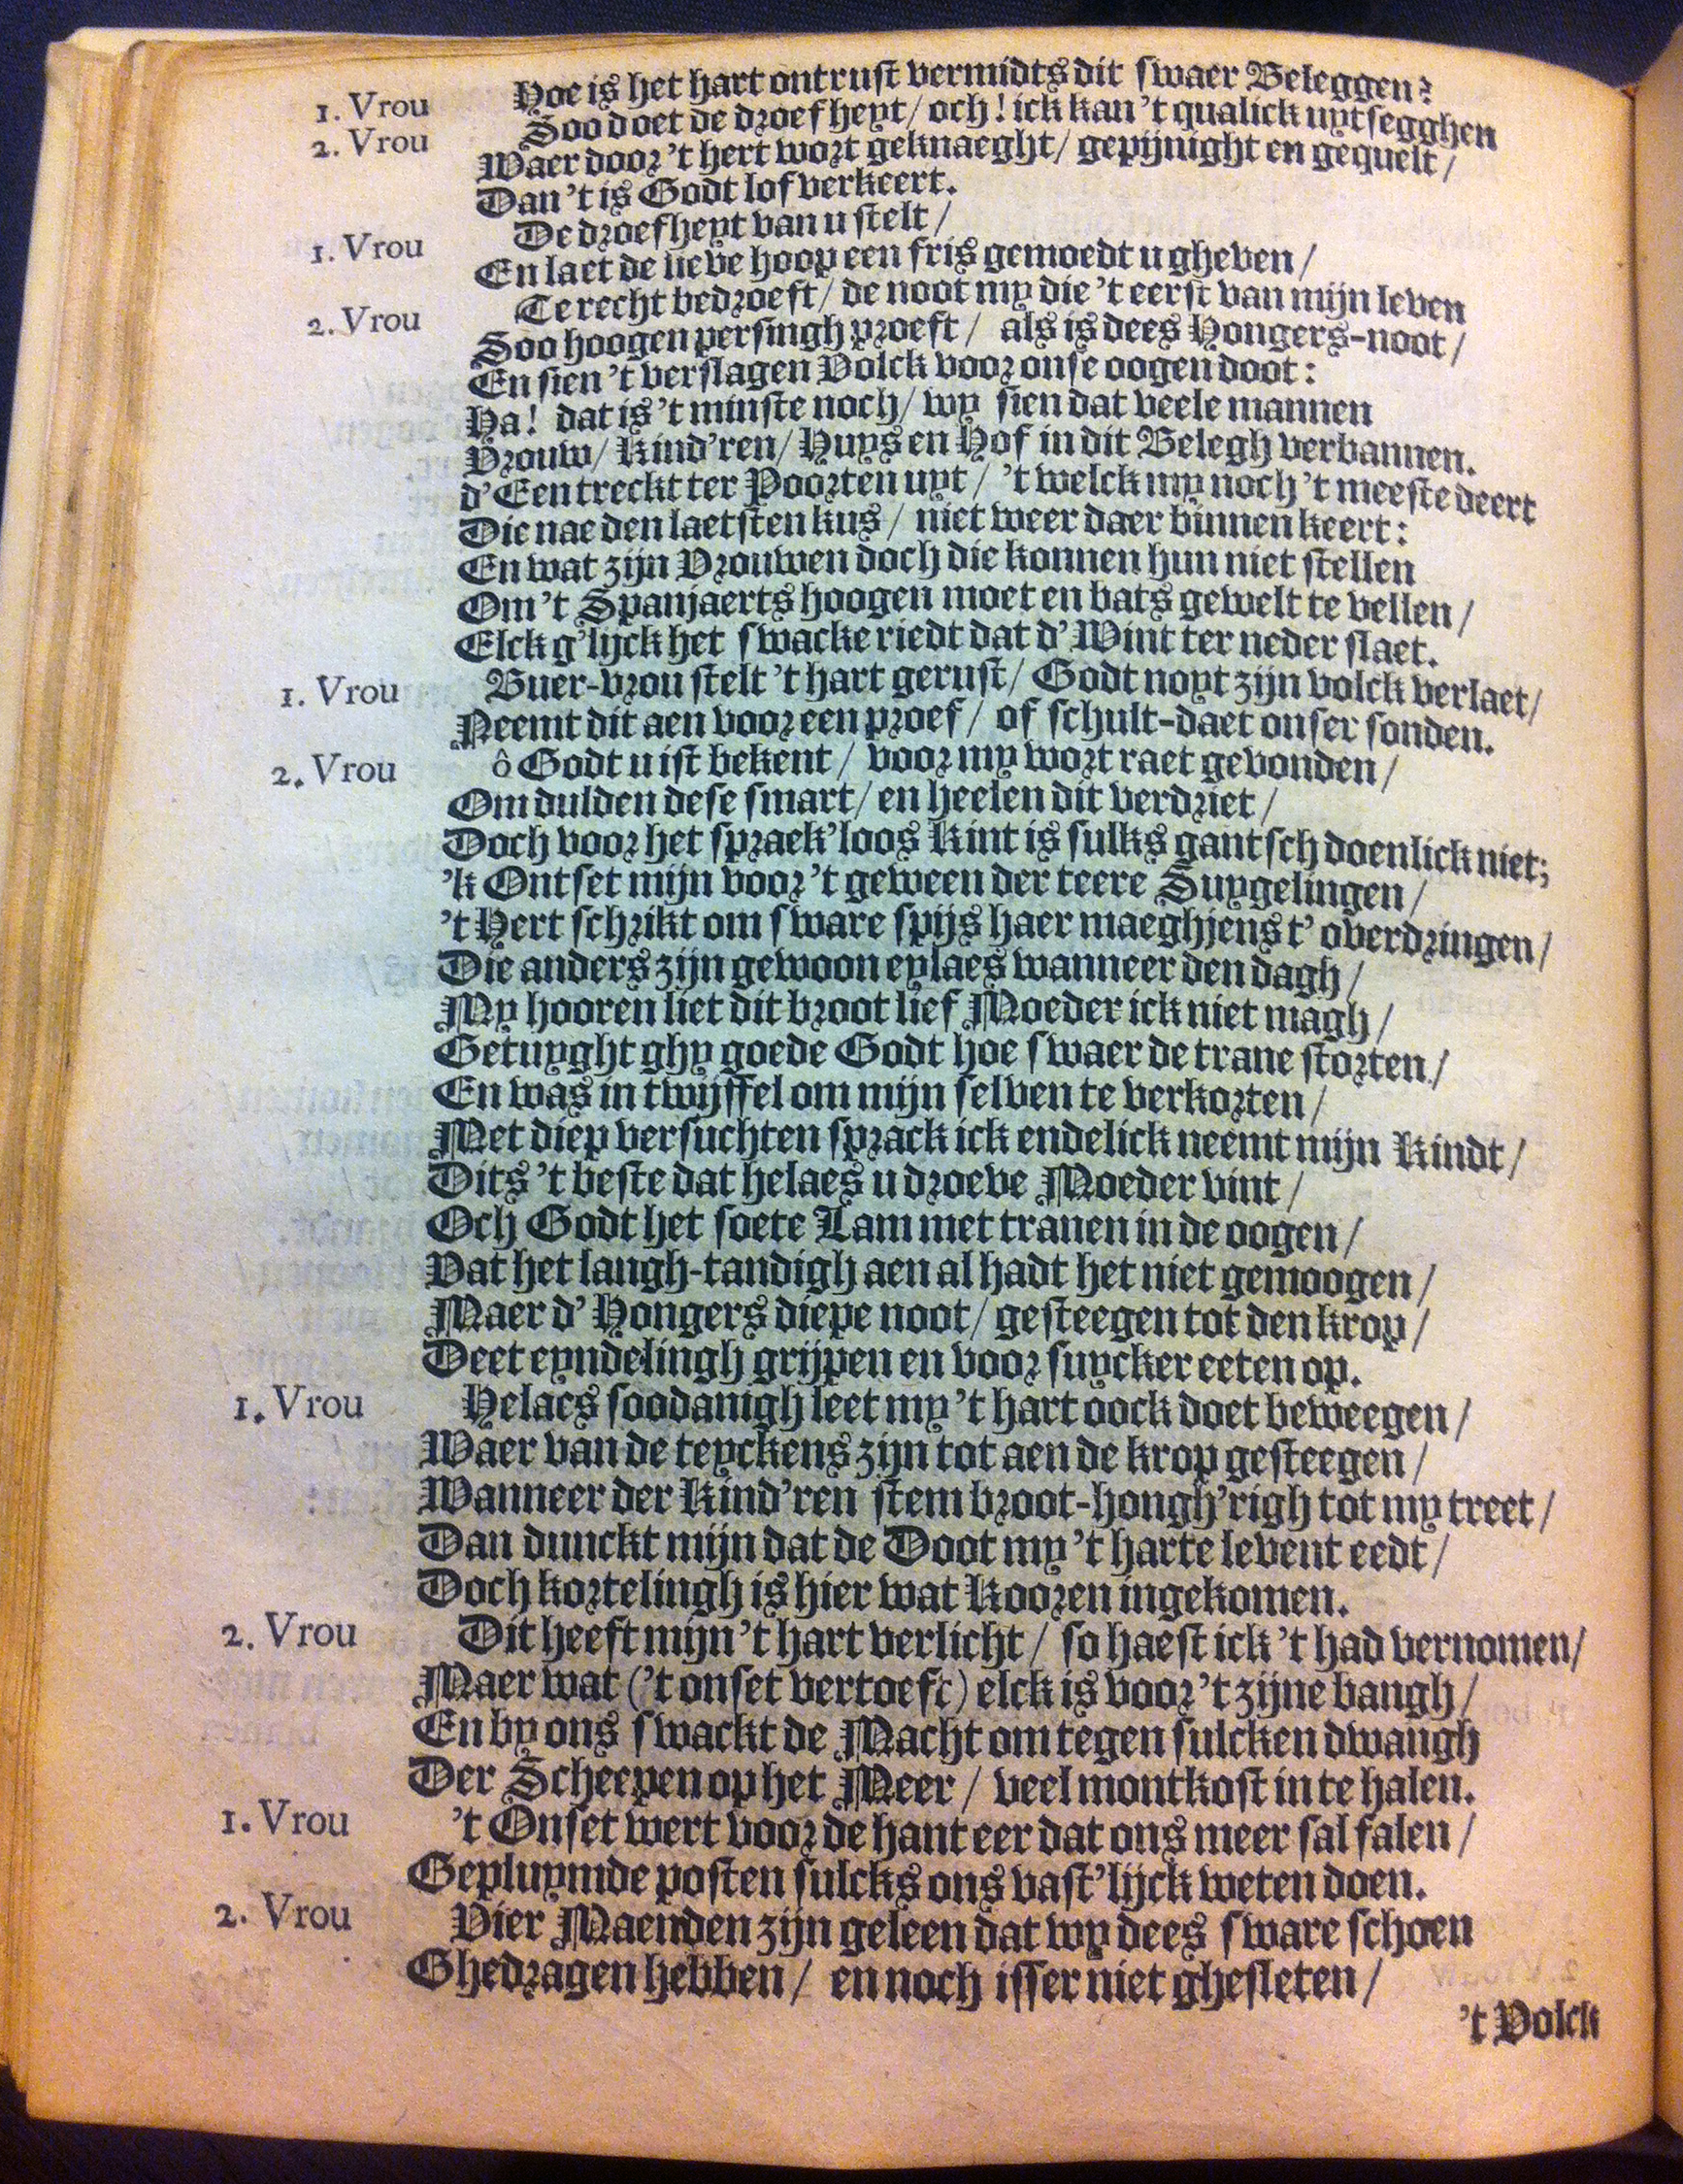 1. Vrou Hoe is het hart ontrust vermidts dit swaer Beleggen?
2. Vrou Soo doet de droefheyt / och! ick kan 't qualick uytsegghen
Waer door 't hert wort geknaeght / gepijnight en gequelt /
Dan 't is Godt lof verkeert.
1. Vrou De droefheyt van u stelt /
En laet de lieve hoop een fris gemoedt u gheven /
2. Vrou Te recht bedroeft / de noot my die 't eerst van mijn leven
Soo hoogen persingh proeft / als is dees Hongers-noot /
En sien 't verslagen Volck voor onse oogen doot:
Ha! dat is 't minste noch / wy sien dat veele mannen
Vrouw / Kind'ren / Huys en Hof in dit Belegh verbannen.
d'Een treckt ter Poorten uyt / 't welck my noch 't meeste deert
Die nae den laetsten kus / niet weer daer binnen keert:
En wat zijn Vrouwen doch die konnen hun niet stellen
Om 't Spanjaerts hoogen moet en bats gewelt te vellen /
Elck g'lijck het swacke riedt dat d'Wint ter neder slaet.
1. Vrou Buer-vrou stelt 't hart gerust / Godt noyt zijn volck verlaet /
Neemt dit aen voor een proef / of schult-daet onser sonden.
2. Vrou ô Godt u ist bekent / voor my wort raet gevonden /
Om dulden dese smart / en heelen dit verdriet /
Doch voor het spraek'loos Kint is sulks gantsch doenlick niet;
'k Ontset mijn voor 't geween der teere Suygelingen /
't Hert schrikt om sware spijs haer maeghjens t'overdringen /
Die anders zijn gewoon eylaes wanneer den dagh /
My hooren liet dit broot lief Moeder ick niet magh /
Getuyght ghy goede Godt hoe swaer de trane storten /
En was in twijffel om mijn selven te verkorten /
Met diep versuchten sprack ick endelick neemt mijn Kindt /
Dits 't beste dat helaes u droeve Moeder vint /
Och Godt het soete Lam met tranen in de oogen /
Vat het langh-tandigh aen al hadt het niet gemoogen /
Maer d'Hongers diepe noot / gesteegen tot den krop /
Deet eyndelingh grijpen en voor suycker eeten op.
1. Vrou Helaes soodanigh leet my 't hart oock doet beweegen /
Waer van de teyckens zijn tot aen de krop gesteegen /
Wanneer der Kind'ren stem broot-hongh'righ tot my treet /
Dan dunckt mijn dat de Doot my 't harte levent eedt /
Doch kortelingh is hier wat Kooren ingekomen.
2. Vrou Dit heeft mijn 't hart verlicht / so haest ick 't had vernomen /
Maer wat ('t onset vertoeft) elck is voor 't zijne bangh /
En by ons swackt de Macht om tegen sulcken dwangh
Der Scheepen op het Meer / veel montkost in te halen.
1. Vrou 't Onset wert voor de hant eer dat ons meer sal falen /
Gepluymde posten sulcks ons vast'lijck weten doen.
2. Vrou Vier Maenden zijn geleen dat wy dees sware schoen
Ghedragen hebben / en noch isser niet ghesleten /
't Volck